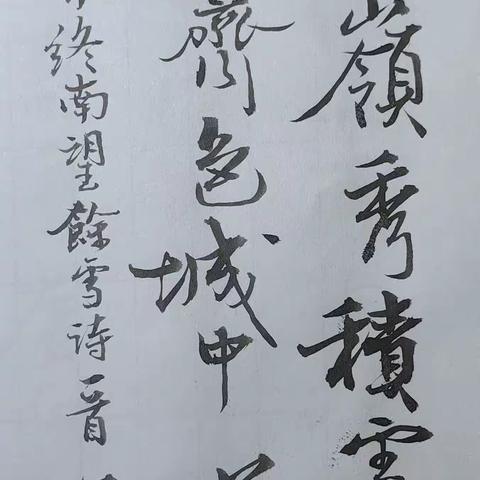 嶺秀積
色城中
终南望餘雪诗一首